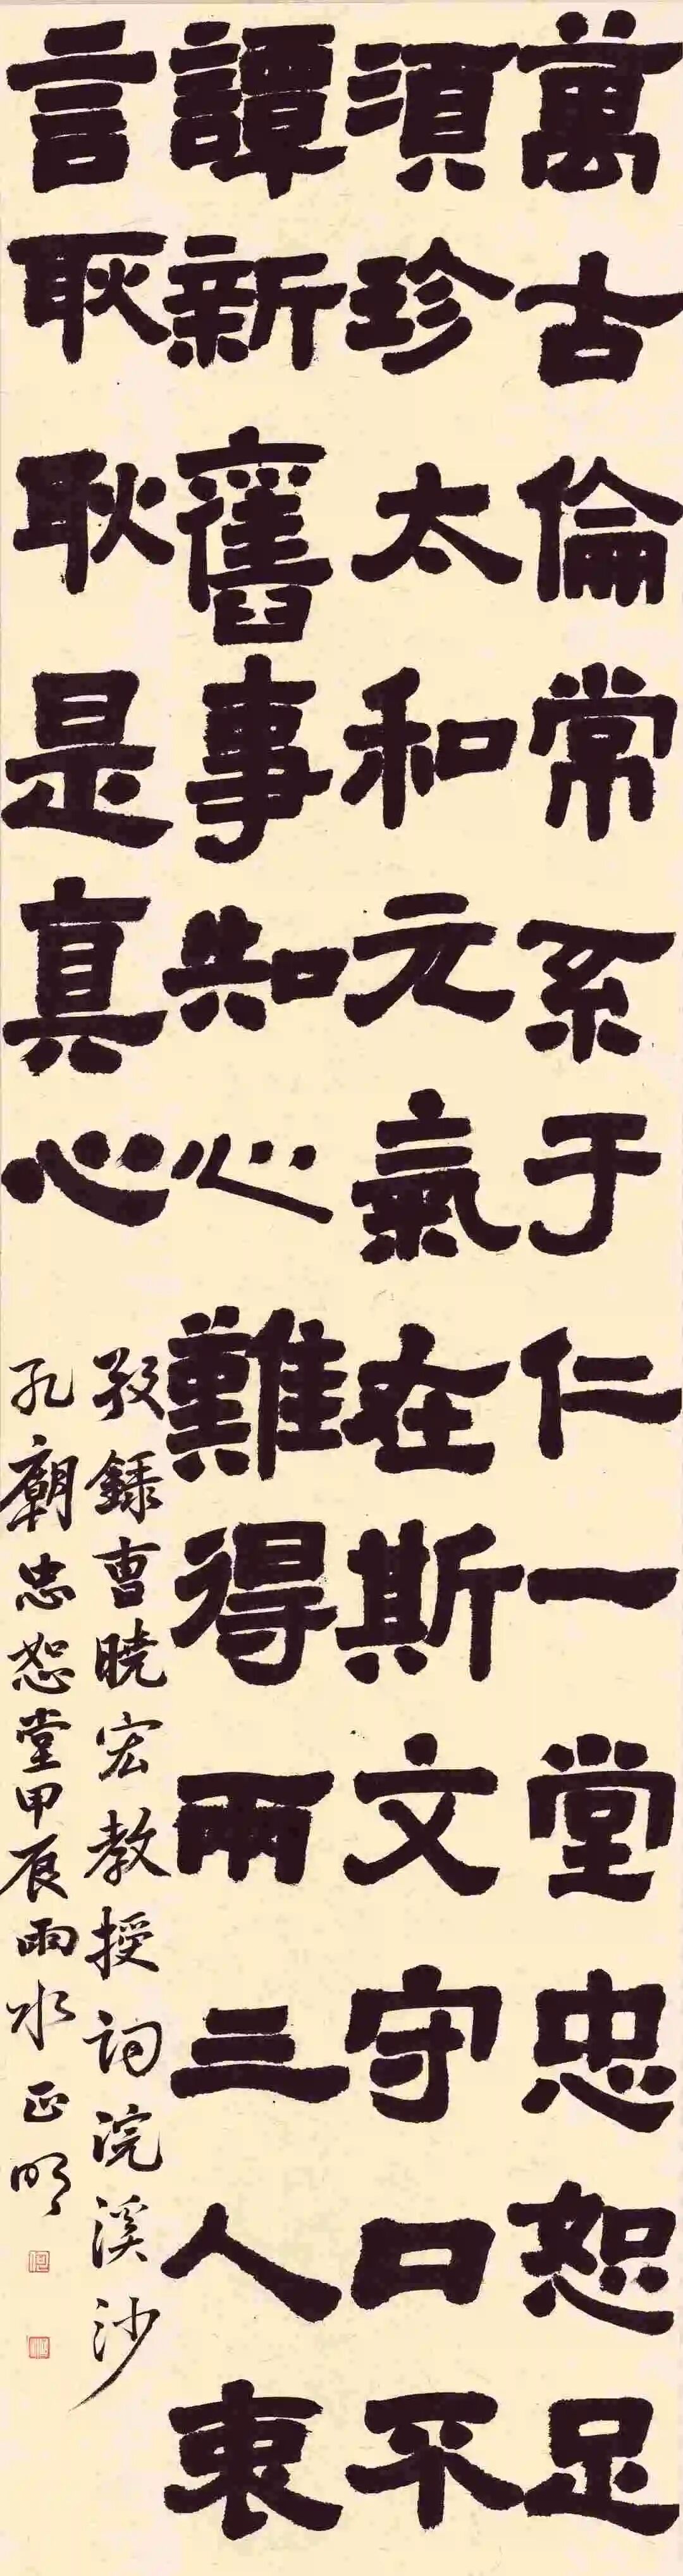 萬古倫常系于仁一堂忠恕足
須珍太和元氣在斯文守口不
譚新舊事知心難得兩三人衷
言耿耿是真心
敬録曹曉宏教授詞浣溪沙
孔廟忠恕堂甲辰雨水正明